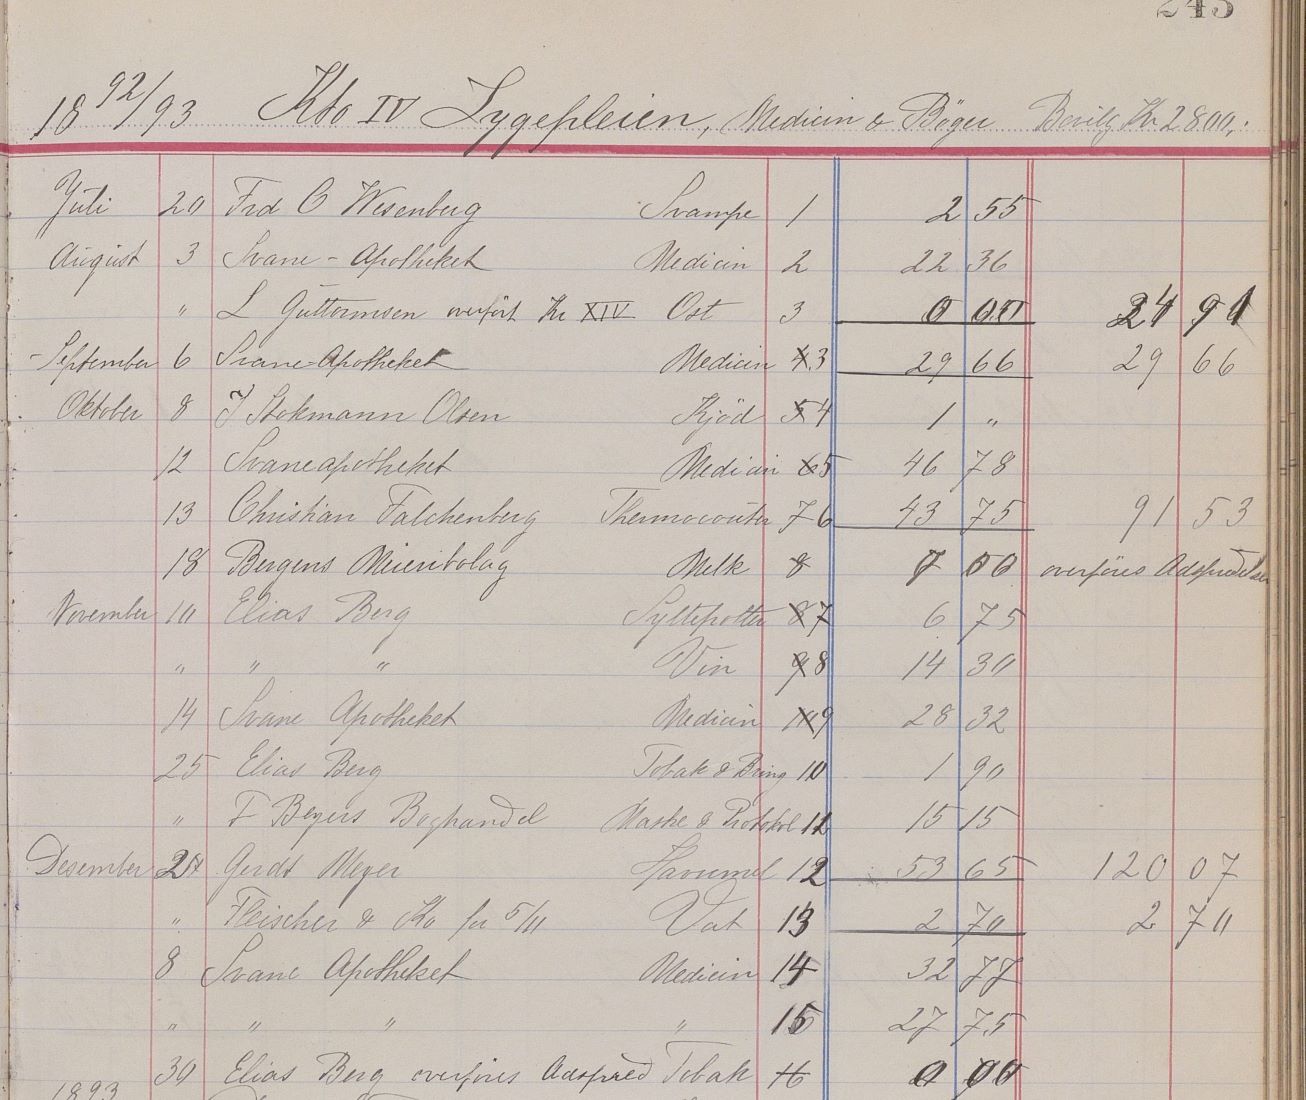 243
18 92/93 Kto IV Sygepleien, Medicin & Böger Bevilg Kr 2800,.
Juli 20 Frd C Wesenberg Svampe 1 2 55
August 3 Svane - Apotheket Medicin 2 22 36
" L Guttormsen overfört Kr XIV Ost 3 0 00 24 91
September 6 Svane-Apotheket Medicin 3 29 66 29 66
Oktober 8 J Stokmann Olsen Kjöd 4 1 "
12 Svaneapotheket Medicin 5 46 78
13 Christian Falchenberg Thermocouter 6 43 75 91 53
18 Bergens Meieribolag Melk 8 0 00 overföres Adspredelser
November 10 Elias Berg Syltepotter 7 6 75
" " " Vin 8 14 30
14 Svane Apotheket Medicin 9 28 32
25 Elias Berg Tobak & 10 1 90
" F Beyers Boghandel Maske & Protokol 11 15 15
Desember 2 Gerdt Meyer Havremel 12 53 65 120 07
" Fleischer & Ko for 5/11 Vat 13 2 70 2 70
8 Svane Apotheket Medicin 14 32 77
" " " " 15 27 75
30 Elias Berg overföres Adspred Tobak 16 0 00
1893